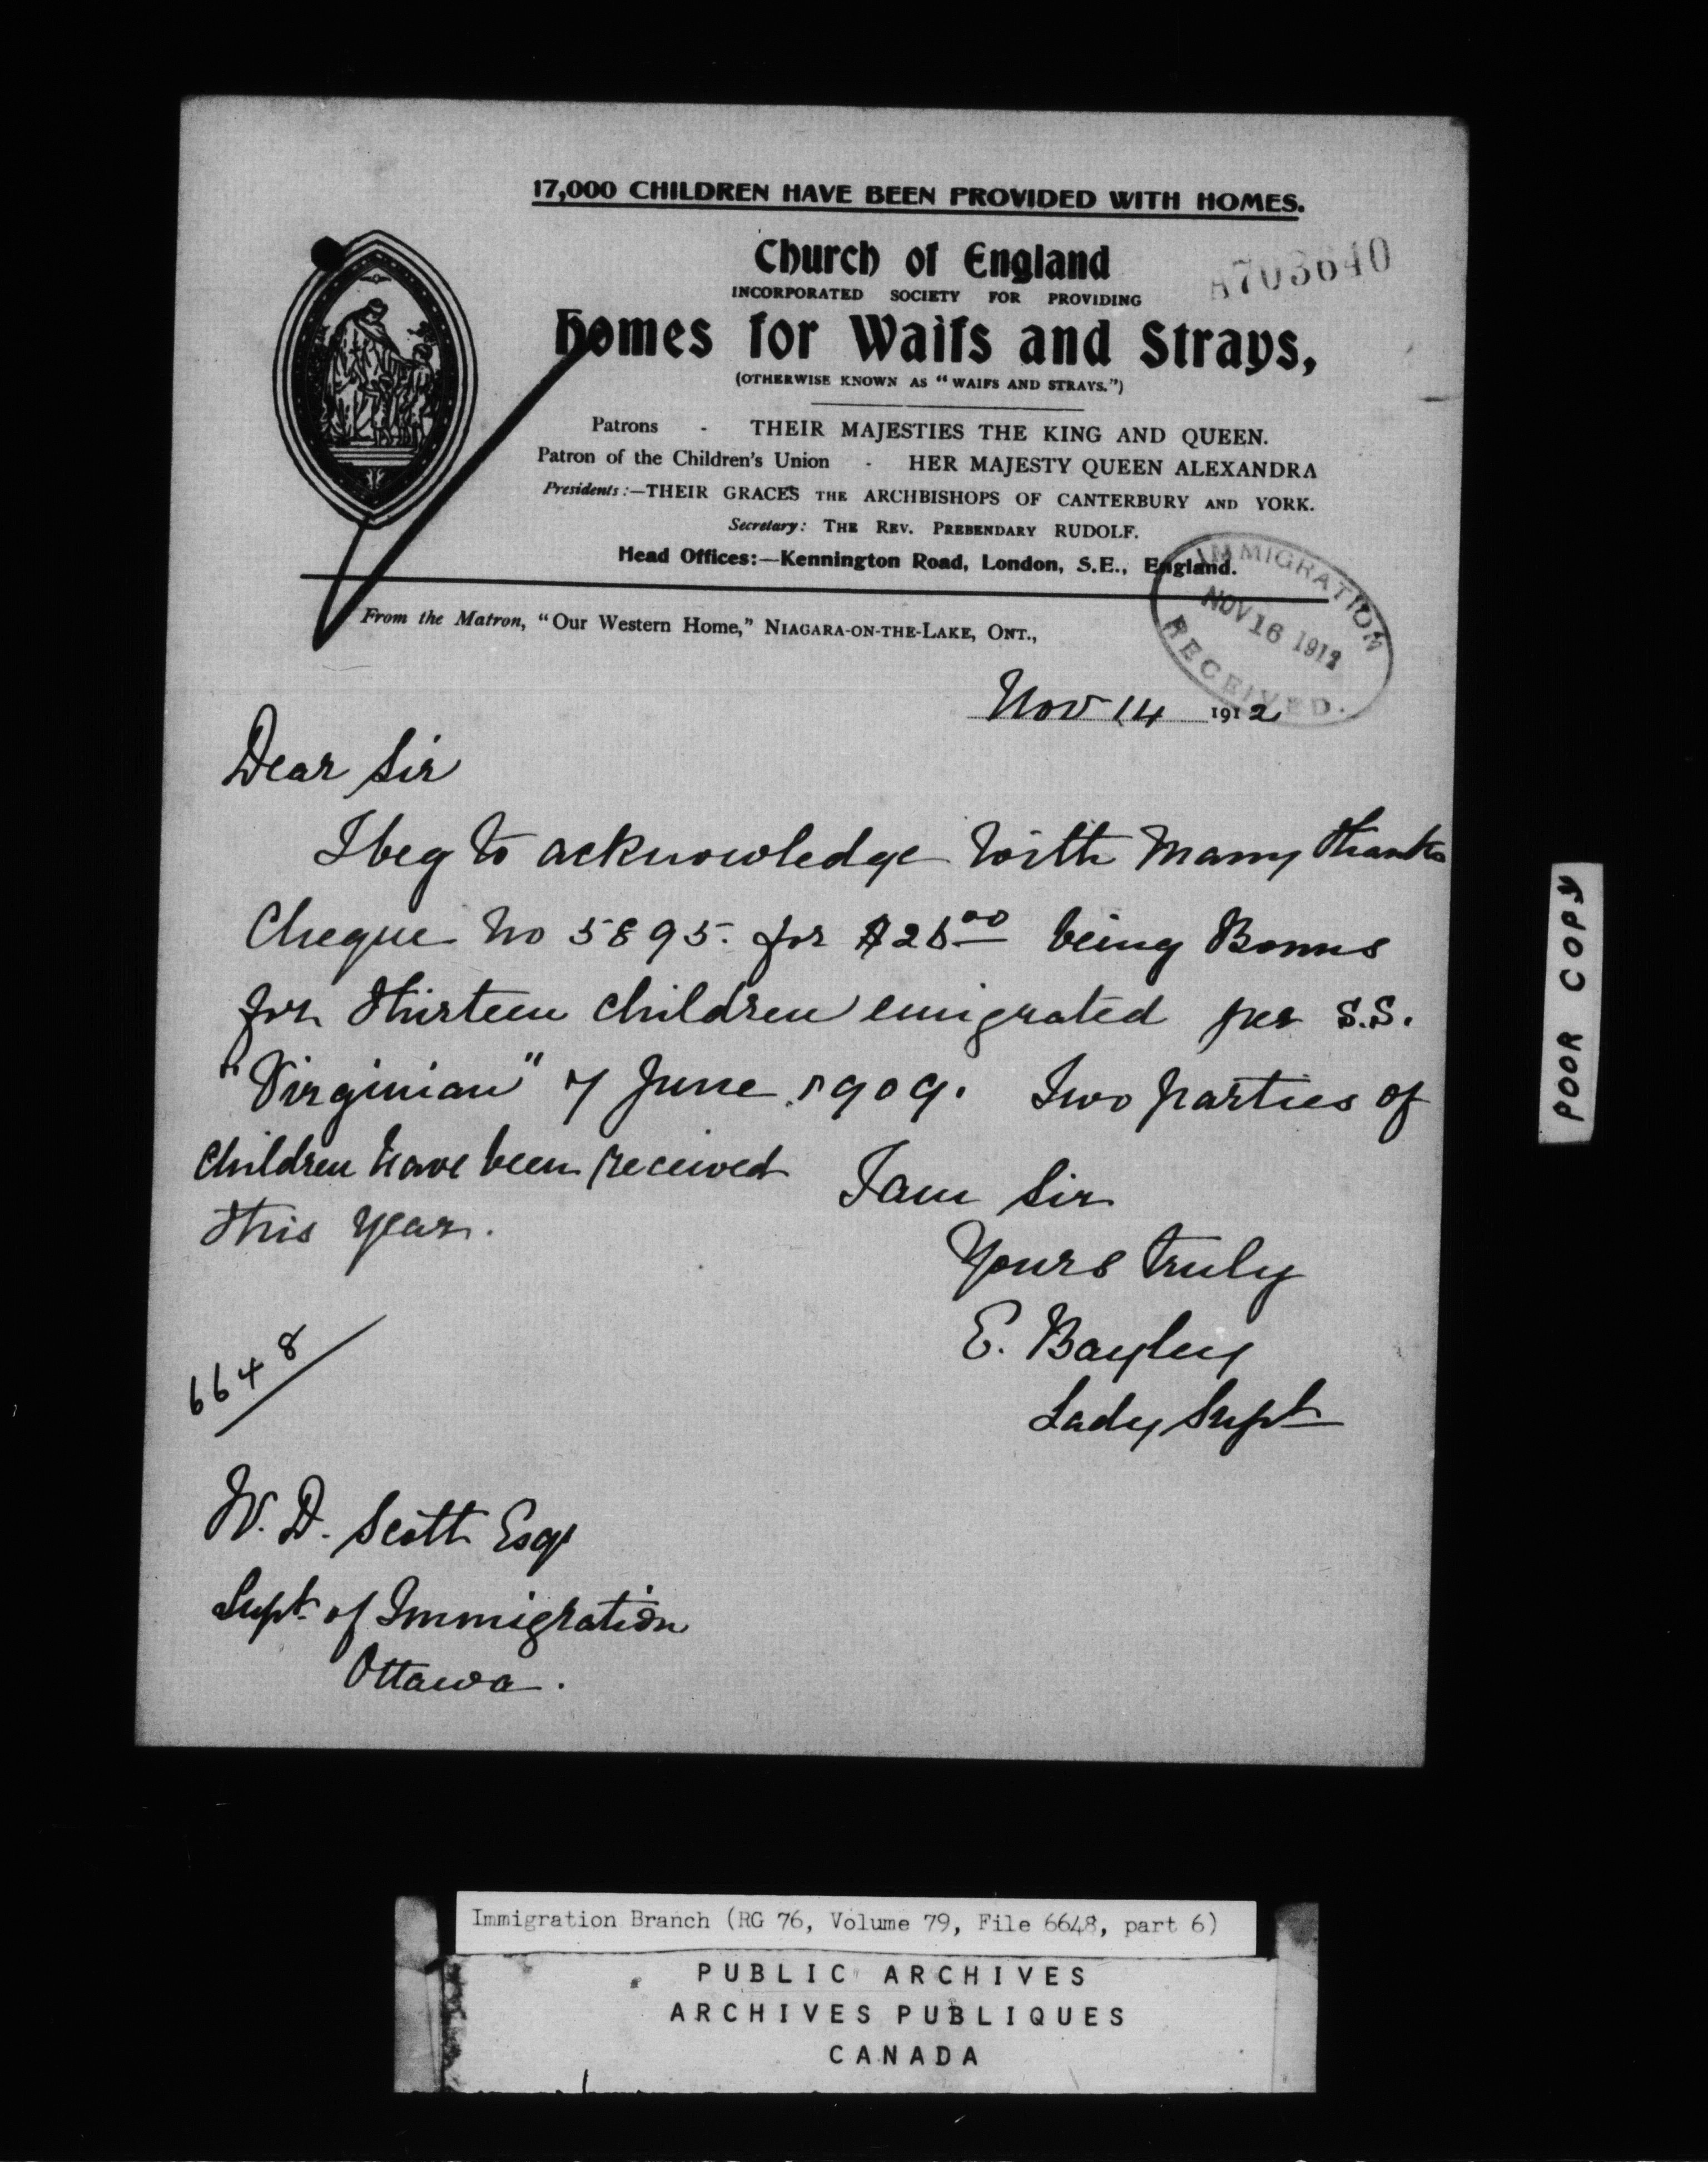 17,000 CHILDREN HAVE BEEN PROVIDED WITH HOMES.
Church of England
A703640
INCORPORATED SOCIETY FOR PROVIDING
Homes for Waifs and Strays,
(OTHERWISE KNOWN AS "WAIFS AND STRAYS.")
Patrons - THEIR MAJESTIES THE KING AND QUEEN.
Patron of the Children's Union - HER MAJESTY QUEEN ALEXANDRA
Presidents:—THEIR GRACES THE ARCHBISHOPS OF CANTERBURY AND YORK.
Secretary: THE REV. PREBENDARY RUDOLF.
Head Offices:—Kennington Road, London, S.E., England.
IMMIGRATION
NOV 16 1912
RECEIVED.
From the Matron, "Our Western Home," NIAGARA-ON-THE-LAKE, ONT.,
Nov 14 1912
Dear Sir
I beg to acknowledge with many thanks
Cheque No 5895. for $26.00 being Bonus
for thirteen children emigrated per S.S.
"Virginian" 7 June 1909. Two parties of
children have been received
this year.
I am Sir
Yours truly
E. Bayley
Lady Supt
6648
W. D. Scott Esqr
Supt. of Immigration
Ottawa.
POOR COPY
Immigration Branch (RG 76, Volume 79, File 6648, part 6)
PUBLIC ARCHIVES
ARCHIVES PUBLIQUES
CANADA